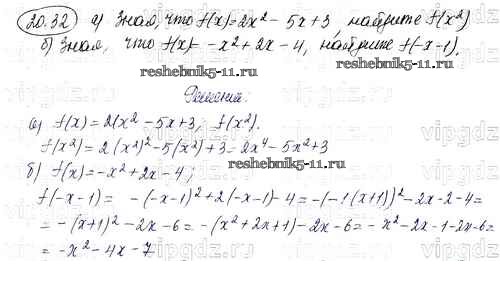 20.32 а) Зная, что f(x)=2x² - 5x+3 найдите f(x²)
б) Зная, что f(x)= -x²+2x-4, найдите f(-x-1).
reshebnik5-11.ru
reshebnik5-11.ru
Решение:
а) f(x)=2(x²-5x+3, f(x²).
f(x²)=2(x²)²-5(x²)+3=2x⁴-5x²+3
reshebnik5-11.ru
б) f(x)=-x²+2x-4;
f(-x-1)= -(-x-1)²+2(-x-1)-4=-(-1(x+1))²-2x-2-4=
=-(x+1)²-2x-6=-(x²+2x+1)-2x-6=-x²-2x-1-2x-6=
=-x²-4x-7